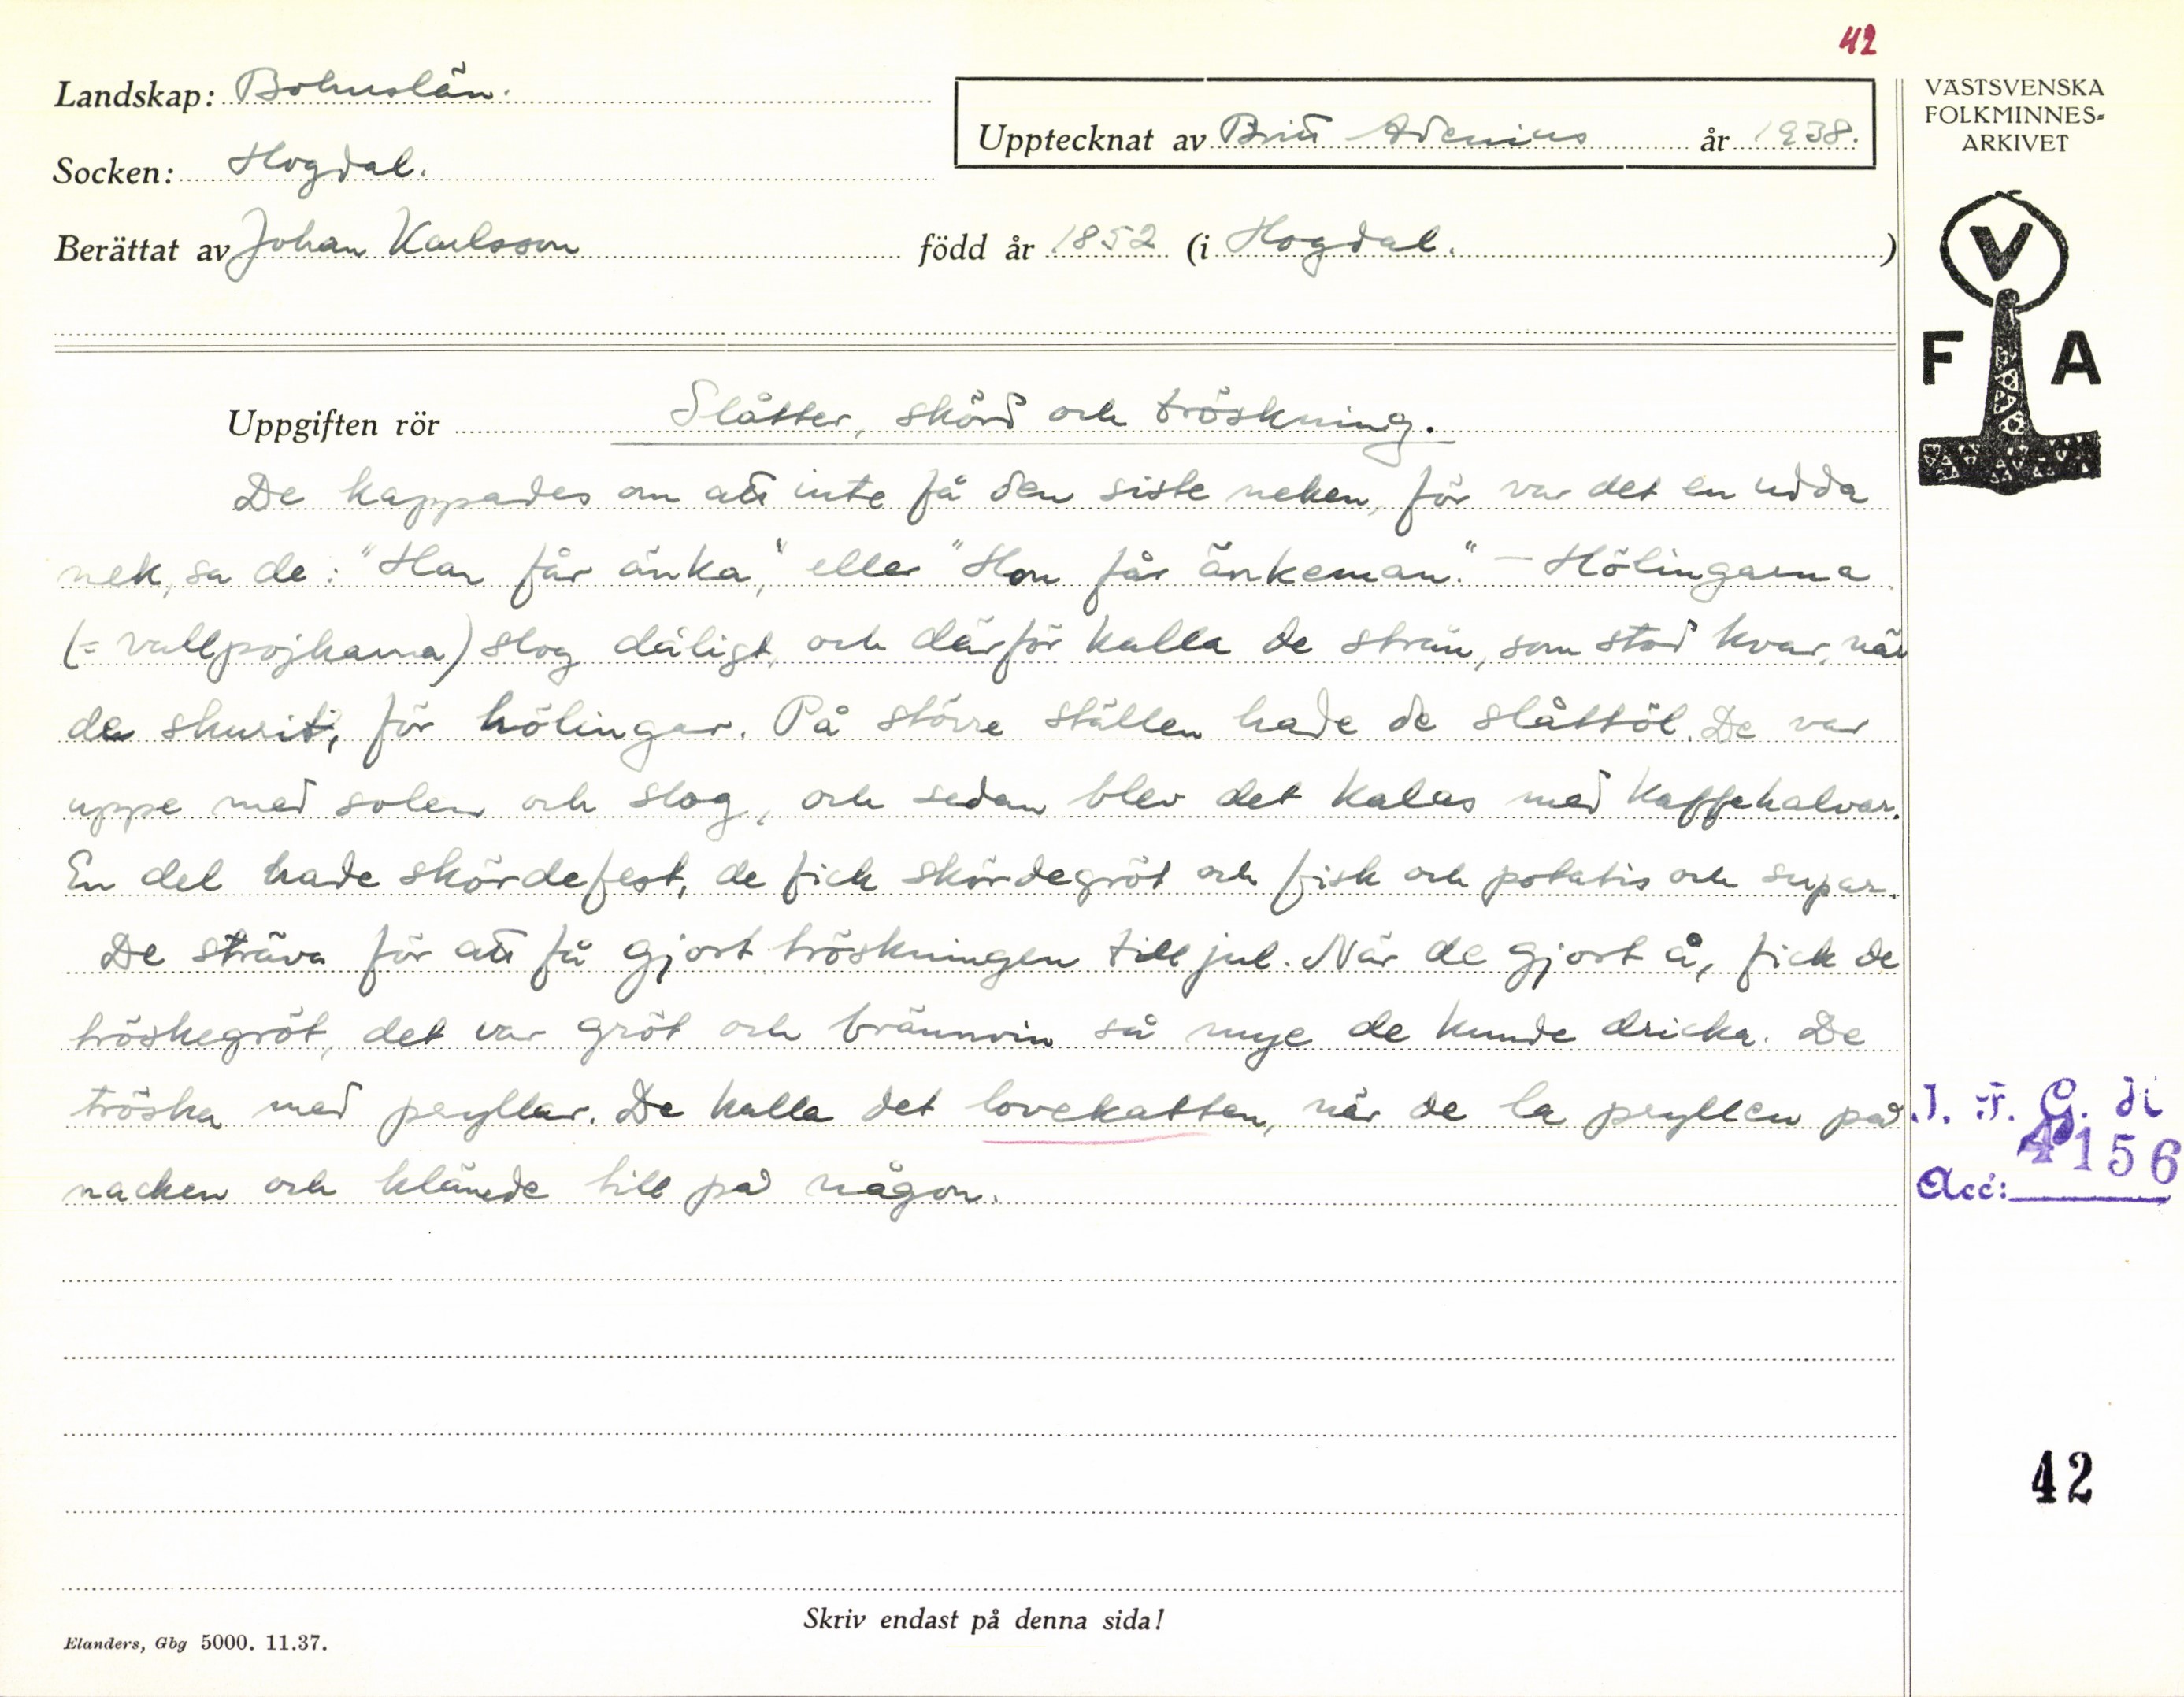 42
Landskap: Bohuslän.
Upptecknat av Britt Adenius år 1938.
VÄSTSVENSKA
FOLKMINNES=
ARKIVET
Socken: Hogdal.
Berättat av Johan Karlsson född år 1852 (i Hogdal. )
V
F A
Uppgiften rör Slåtter, skörd och tröskning.
De kappades om att inte få den siste neken, för var det en udda
nek, sa de: "Han får änka," eller "Hon får änkeman." - Hölingarna
(= vallpojkarna) slog dåligt, och därför kalla de strån, som stod kvar, när
de skurit, för hölingar. På större ställen hade de slåttöl. De var
uppe med solen och slog, och sedan blev det kalas med kaffehalvar.
En del hade skördefest, de fick skördegröt och fisk och potatis och supar.
De sträva för att få gjort tröskningen till jul. När de gjort å, fick de
tröskegröt, det var gröt och brännvin så mye de kunde dricka. De
tröska med peyllar. De kalla det lovekatten, när de la peyllen på
nacken och klämde till på någon.
I. F. G. di
4156
Acc:
42
Skriv endast på denna sida!
Elanders, Gbg 5000. 11.37.